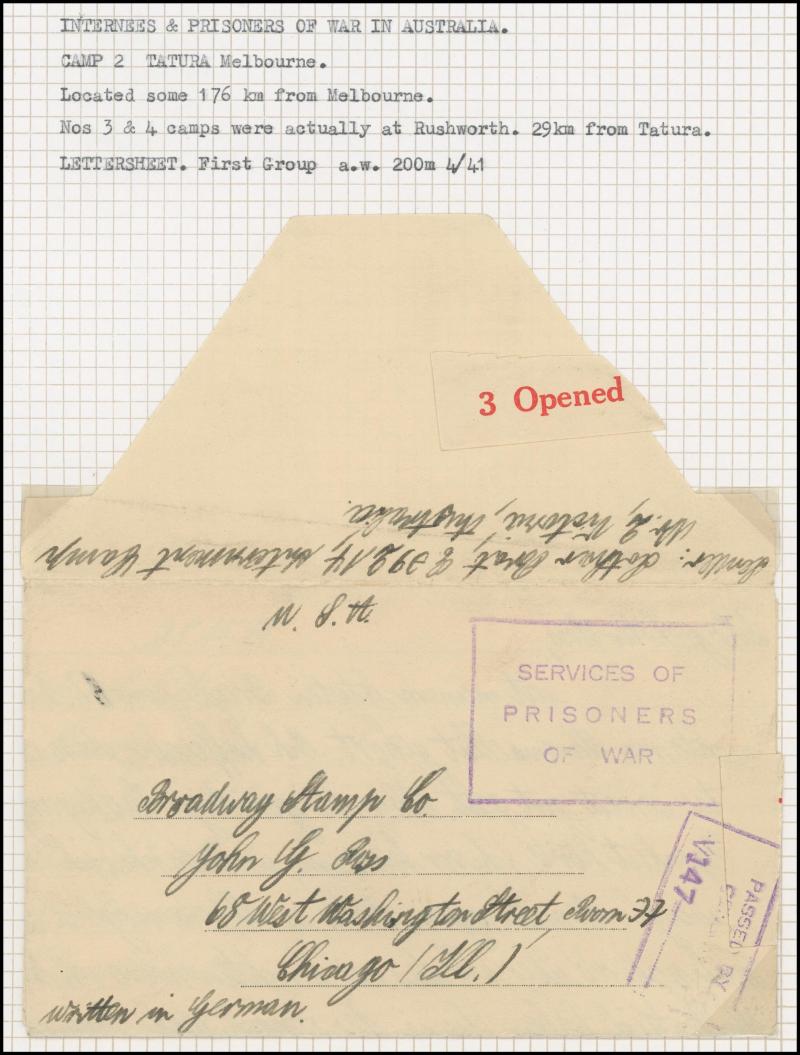 INTERNEES & PRISONERS OF WAR IN AUSTRALIA.
CAMP 2 TATURA Melbourne.
Located some 176 km from Melbourne.
Nos 3 & 4 camps were actually at Rushworth. 29km from Tatura.
LETTERSHEET. First Group a.w. 200m 4/41
3 Opened
Sender: Lothar Internment Camp
Nr. 2, Victoria, Australia.
U. S. A.
SERVICES OF
PRISONERS
OF WAR
Broadway Stamp Co
John G. Ross
68 West Washington Street, Room 27
Chicago (Ill.)
written in German.
PASSED BY
V147